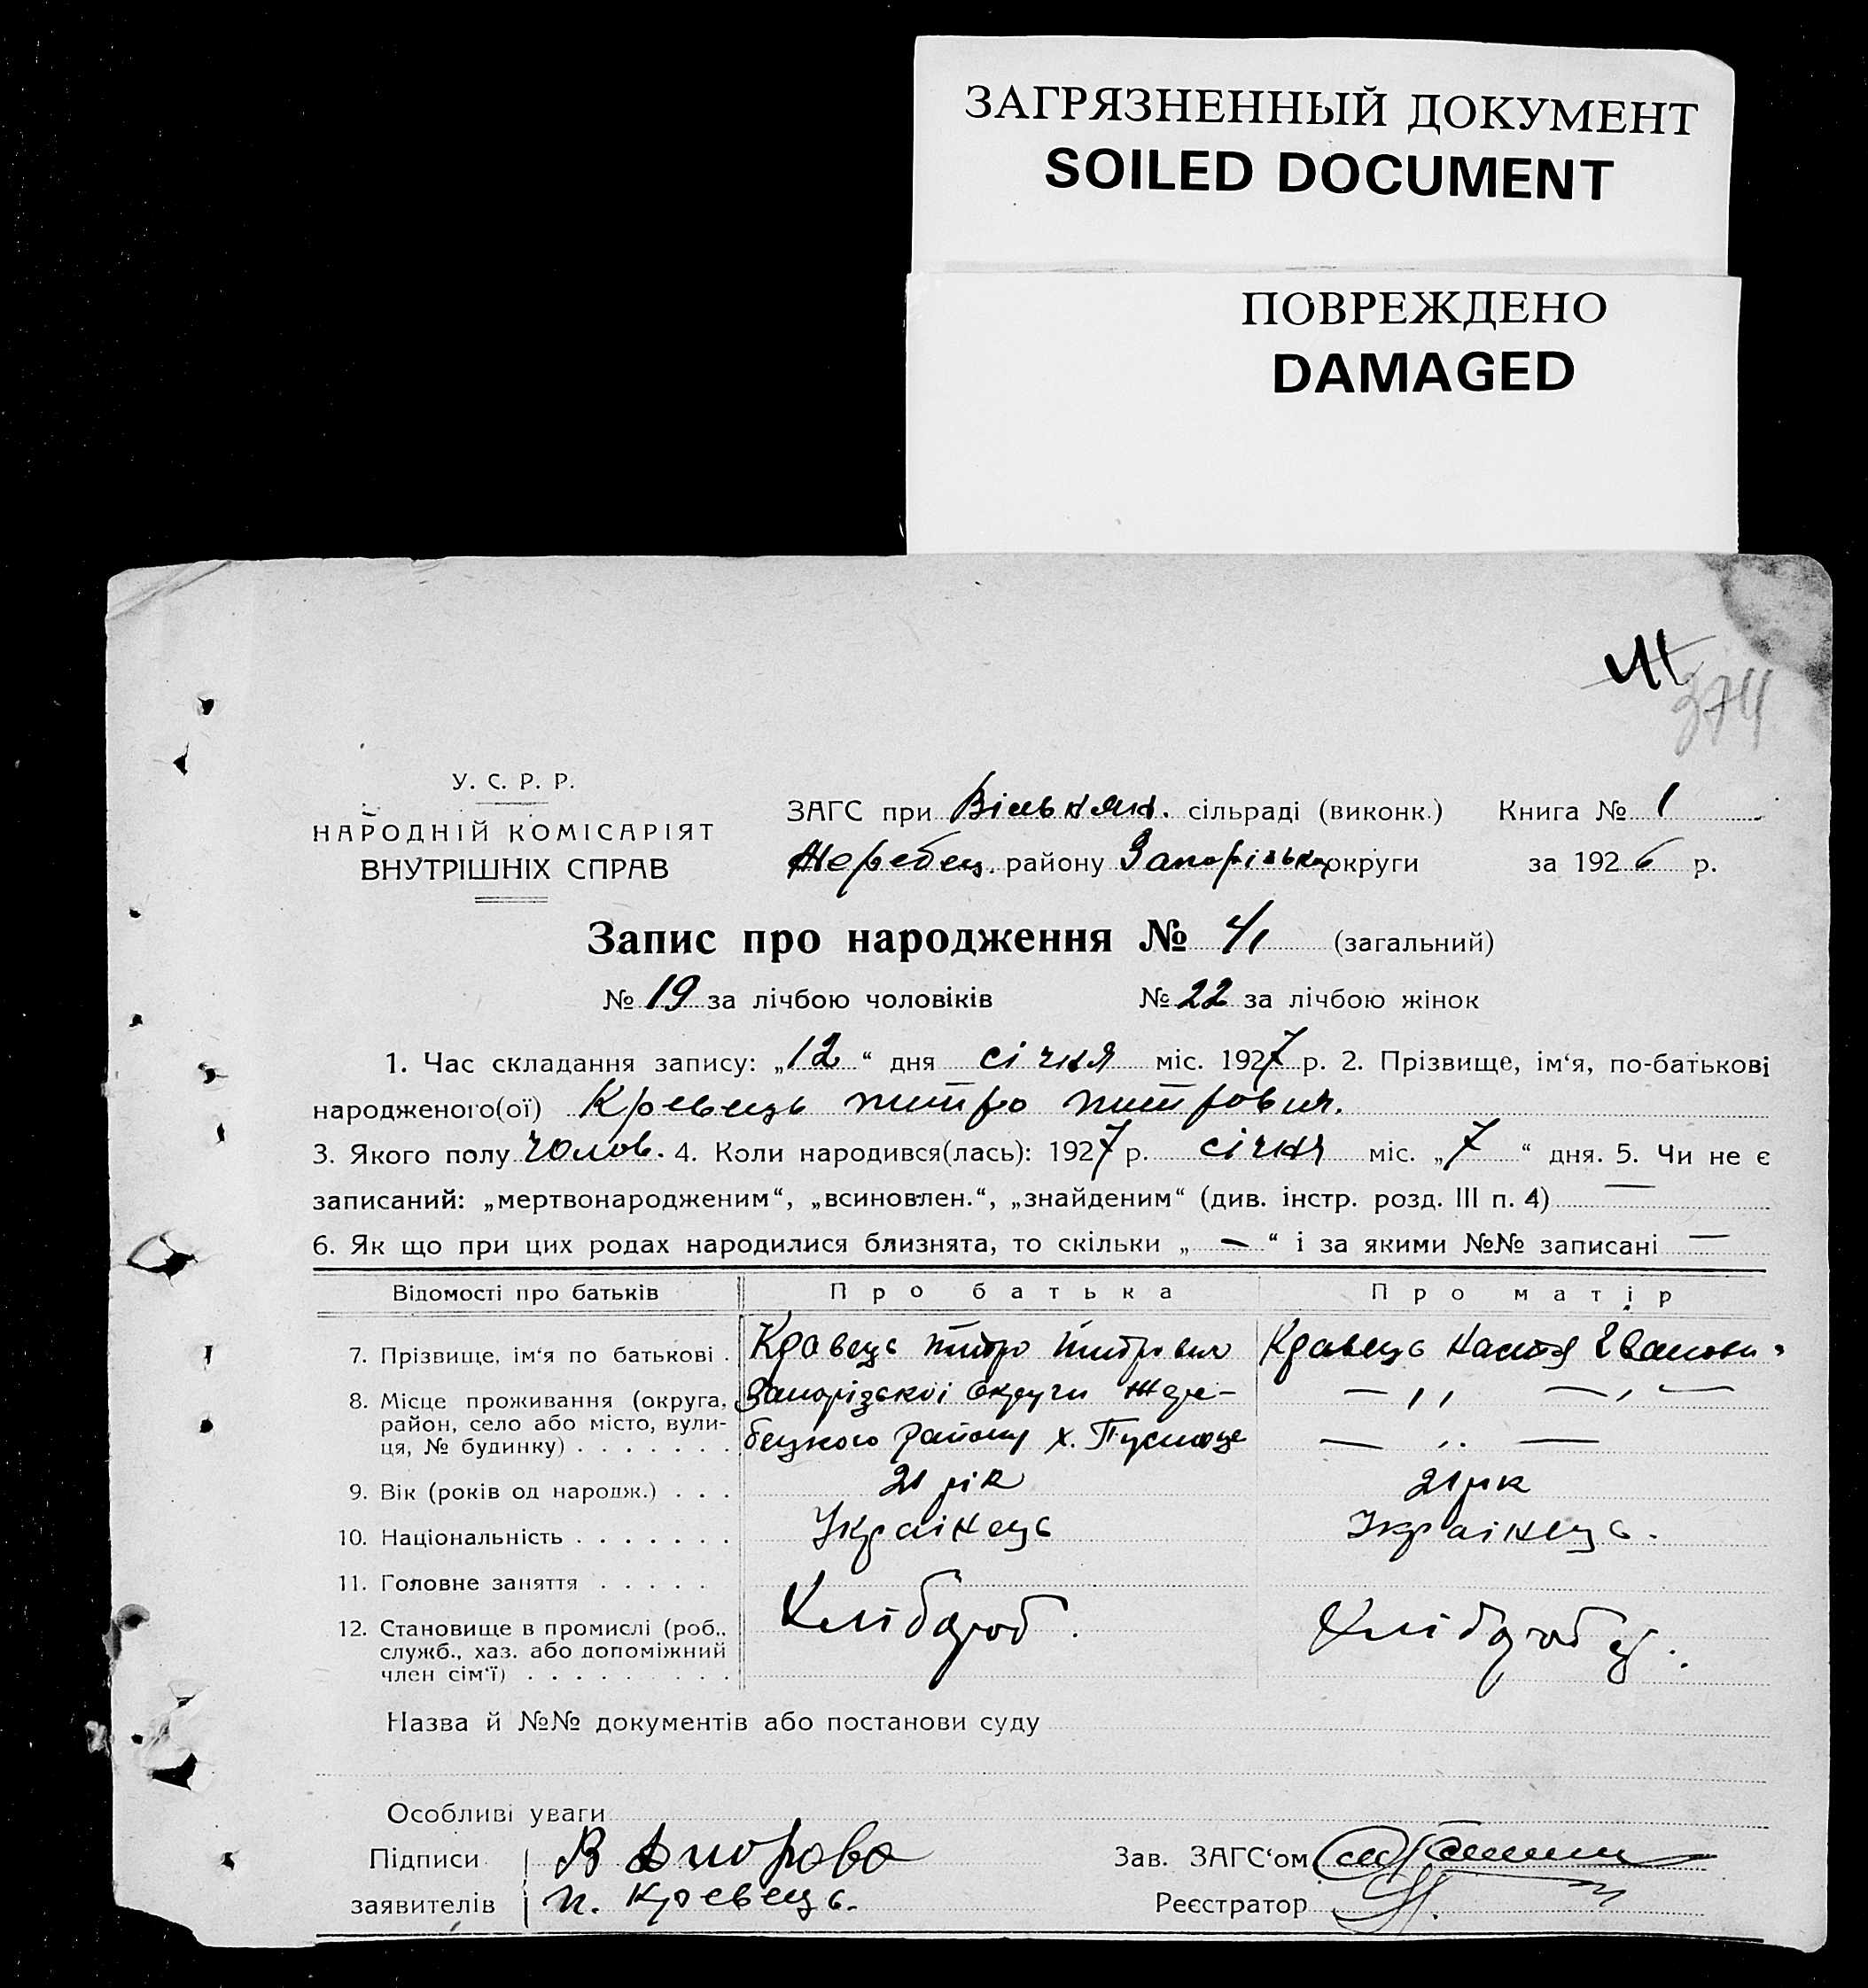 ЗАГРЯЗНЕННЫЙ ДОКУМЕНТ
SOILED DOCUMENT
ПОВРЕЖДЕНО
DAMAGED
374
У. С. Р. Р.
НАРОДНІЙ КОМІСАРІЯТ
ВНУТРІШНІХ СПРАВ
ЗАГС при Вільнян. сільраді (виконк.) Книга № 1
Жеребец. району Запорізької округи за 1926 р.
Запис про народження № 41 (загальний)
№ 19 за лічбою чоловіків № 22 за лічбою жінок
1. Час складання запису: „12“ дня січня міс. 1927 р. 2. Прізвище, ім‘я, по-батькові
народженого(ої) Кравець Питро Питрович.
3. Якого полу чолов. 4. Коли народився(лась): 1927 р. січня міс. „7“ дня. 5. Чи не є
записаний: „мертвонародженим“, „всиновлен.“, „знайденим“ (див. інстр. розд. III п. 4) —
6. Як що при цих родах народилися близнята, то скільки „ — “ і за якими №№ записані —
Відомості про батьків Про батька Про матір
7. Прізвище, ім‘я по батькові . Кравець Питро Питрович Кравець Настя Іванови
8. Місце проживання (округа, Запорізської округи Жере- — ,, — , —
район, село або місто, вули- бецкого району х.
ця, № будинку) . . . . . . . — ,, —
9. Вік (років од народж.) . . . 21 рік 21 рік
10. Національність . . . . . . . Українець Українець.
11. Головне заняття . . . . .
12. Становище в промислі (роб., Хлібороб. Хлібороб
служб., хаз. або допоміжний
член сім‘ї) . . . . . . . . .
Назва й №№ документів або постанови суду
Особливі уваги
Підписи В
заявителів п. Кравець.
Зав. ЗАГС‘ом
Реєстратор